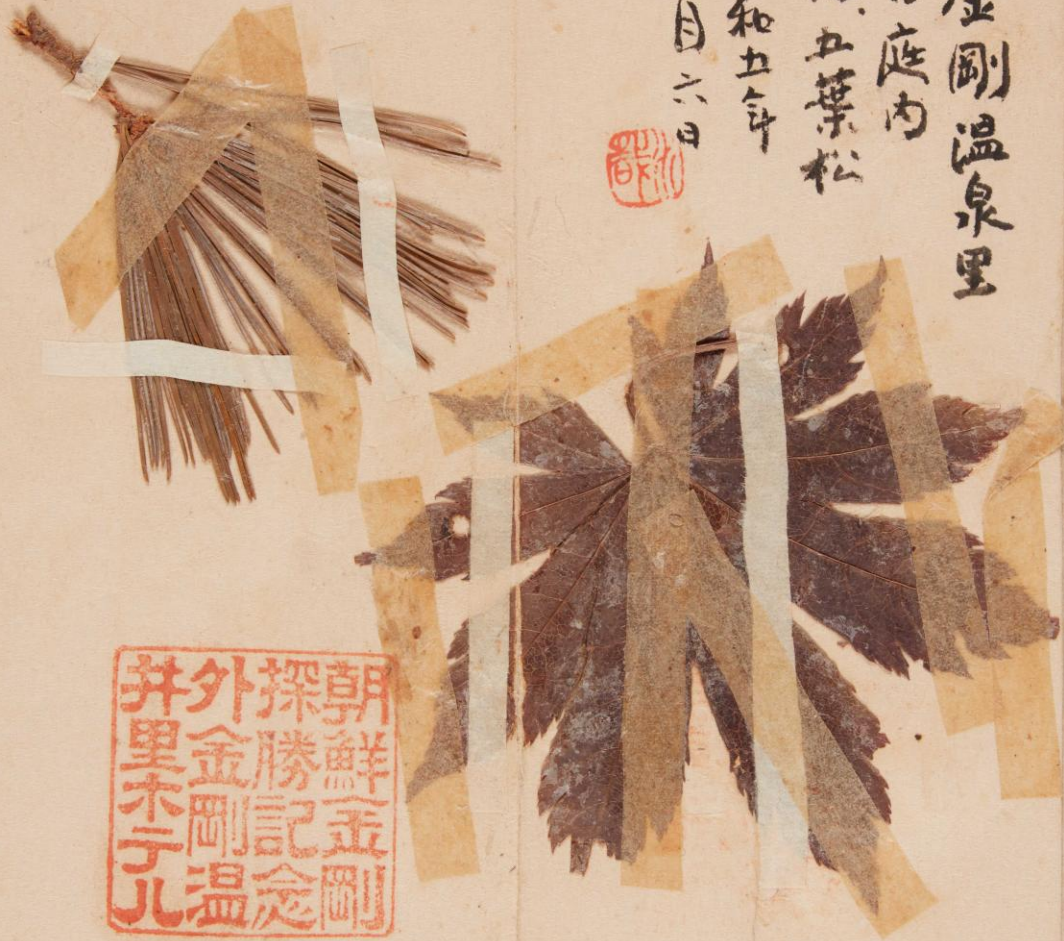 金剛温泉里
庭内
五葉松
和五年
月六日
朝鮮金剛
探勝記念
外金剛温
井里ホテル